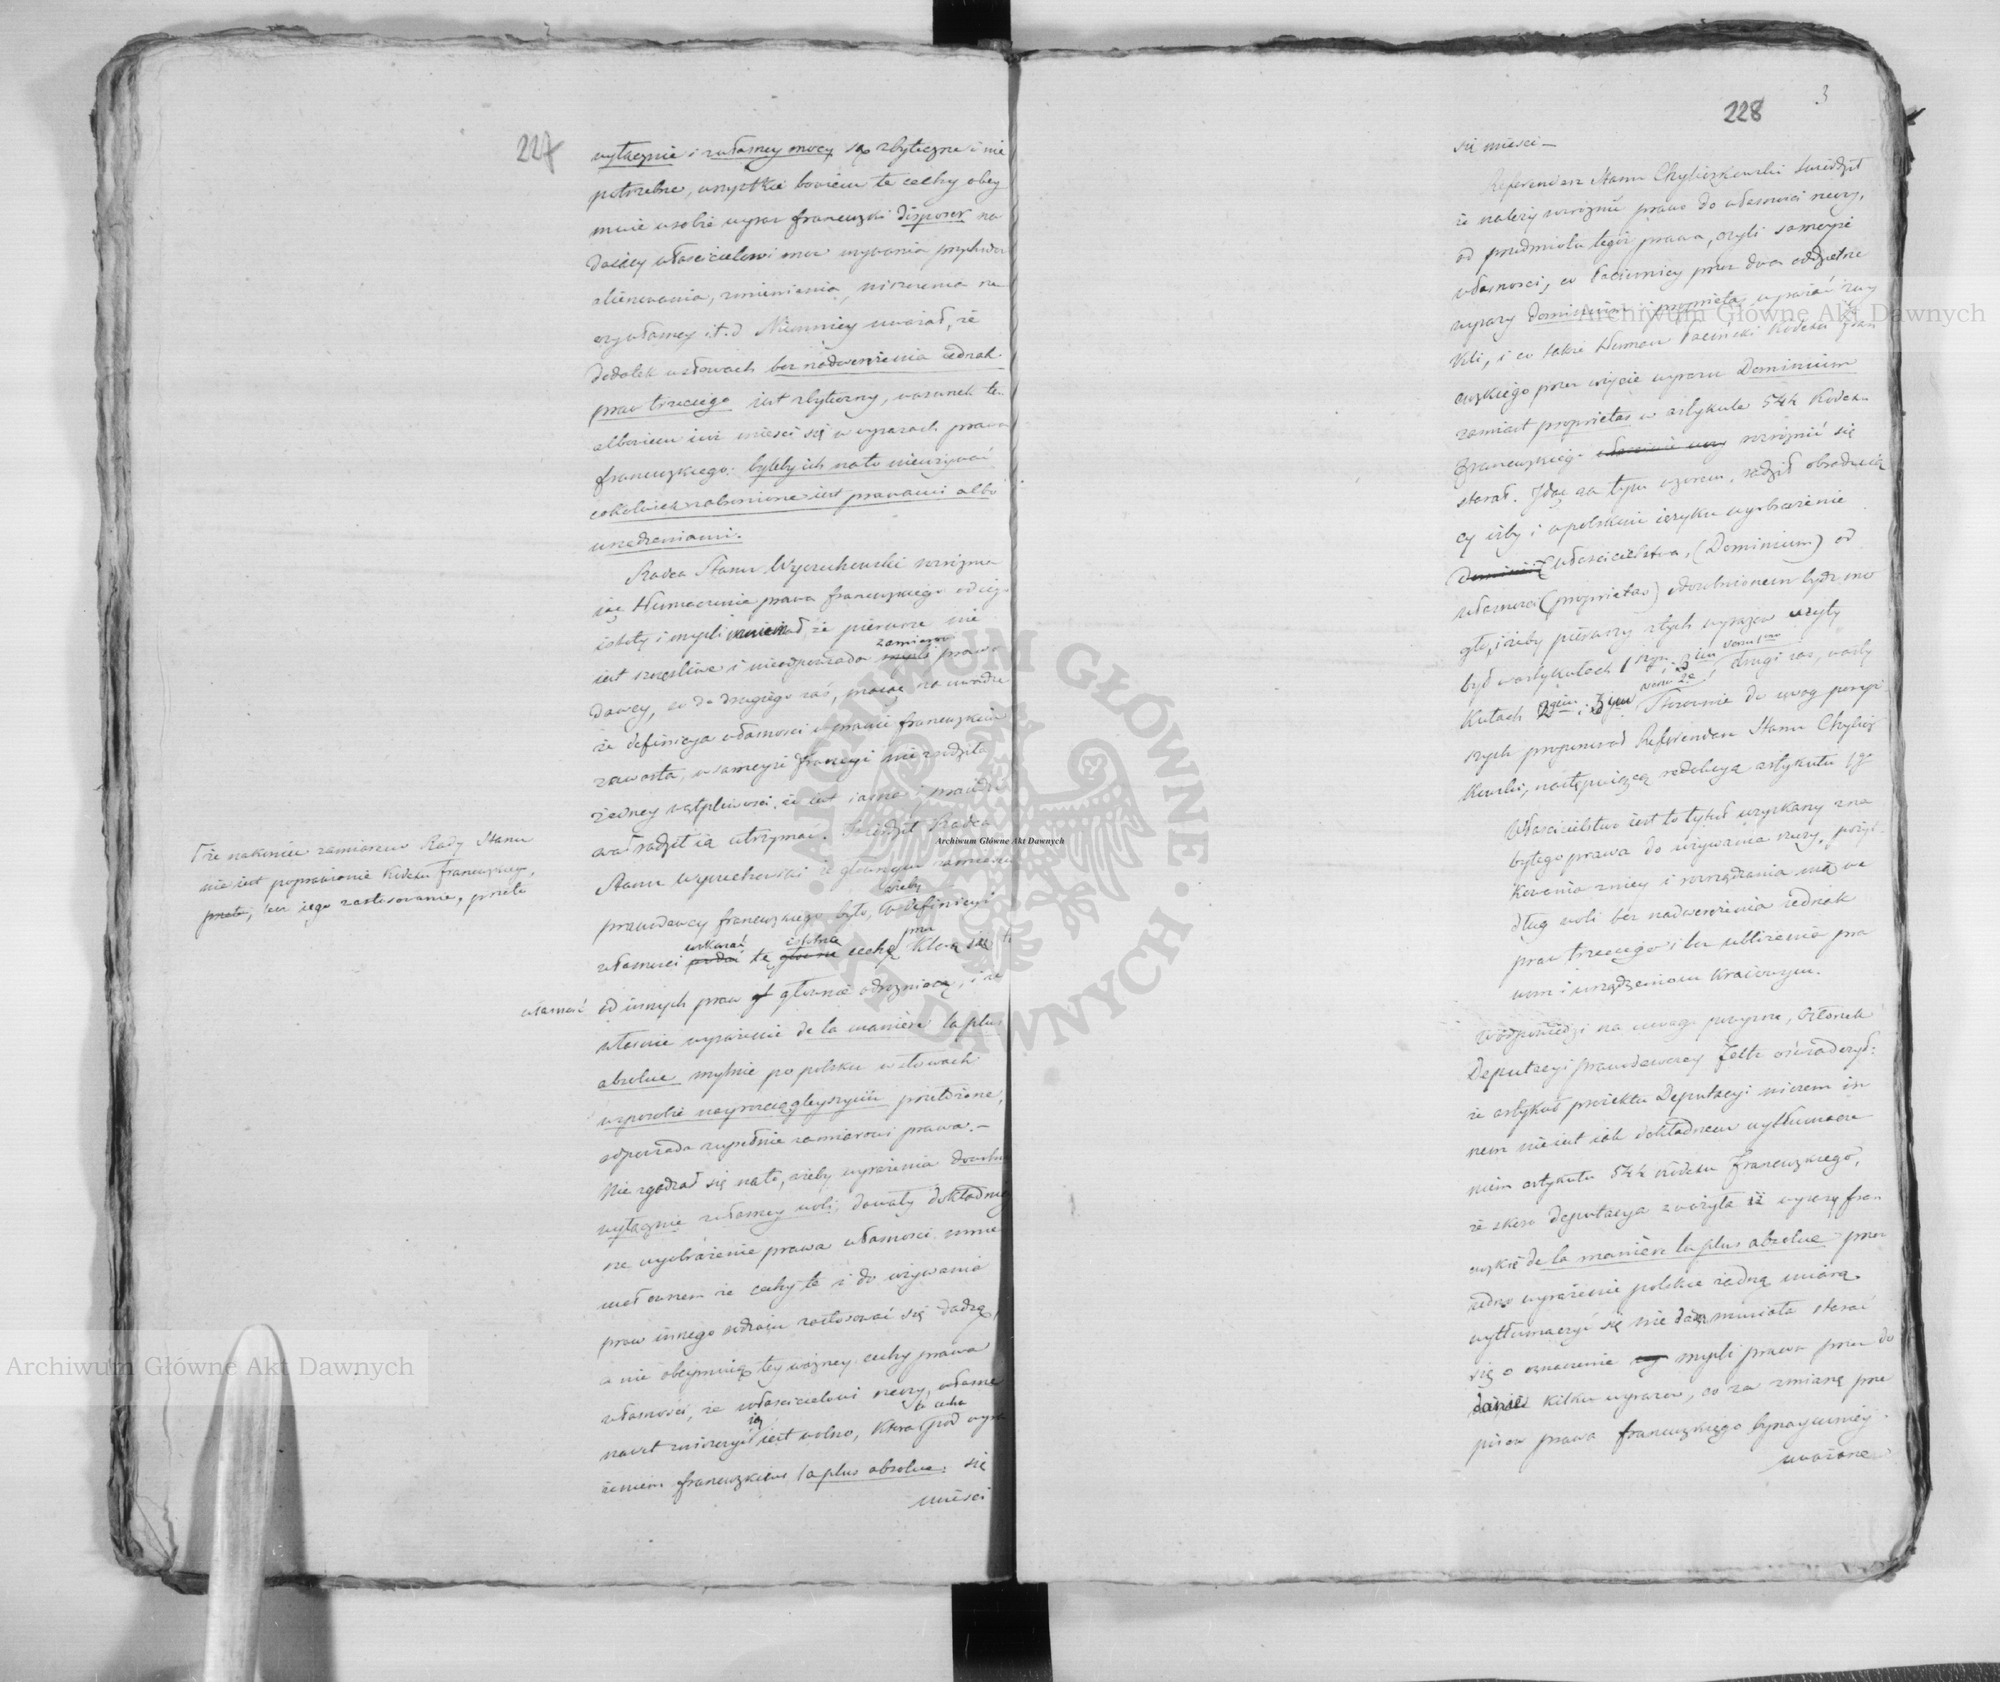 227
wyłącznie i własney mocy są zbyteczne i nie
potrzebne, wszystkie bowiem te cechy obey
muie w sobie wyraz francuzki disposer na
daiący właścicielowi moc używania
alienowania, zmienienia, niszczenia rze
czy własney i.t.d. Niemniey uważał, że
dodatek w słowach bez nadwerężenia iednak
praw trzeciego iest zbyteczny, warunek te
albowiem iuż mieści się w wyrazach prawa
francuzkiego: byleby ich na to nieużywać
cokolwiek zabronione iest prawami albo
urządzeniami.
Radca Stanu Wyczechowski rozróżnia
iąc tłumaczenie prawa francuzkiego od iego
istoty i myśli mniemał, że pierwsze nie
iest szczęśliwe i nieodpowiada myśli zamiarowi prawo
dawcy, co do drugiego zaś, maiąc na uwadze
że definicya własności w prawie francuzkiem
zawarta, w sameyże francyi nie zrodziła
żadney wątpliwości, że iest iasna i prawdzi
wa radził ią utrzymać. Twierdził Radca
Stanu Wyczechowski że głównym zamiarem
prawodawcy francuzkiego było, żeby w definicyi
własności podać wskazać tę główną istotną cechę przez którą się ta
własność od innych praw gł głównie odróżniać, i że
właśnie wyrażenie de la manière la plus
absolue mylnie po polsku w słowach
w sposobie nayrozciągleyszym przełożone,
odpowiada zupełnie zamiarowi prawa.—
Nie zgadzał się na to, żeby wyrażenia dowolnie
wyłącznie z własney woli, dawały dokładniey
sze wyobrażenie prawa własności, mnie
mał owszem że cechy te i do używania
praw innego rodzaiu zastosować się dadzą,
a nie obeymuią tey ważney cechy prawa
własności, że właścicielowi rzeczy, własne
nawet zniszczyć ią iest wolno, która to cecha pod wyra
żeniem francuzkiem la plus absolue. się
mieści
że nakoniec zamiarem Rady Stanu
nie iest poprawienie Kodexu francuzkiego,
lecz iego zastosowanie, przeto
228
3
się mieści—
Referendarz Stanu Chyliczkowski twierdził
że należy rozróżnić prawo do własności rzeczy,
od przedmiotu tegoż prawa, czyli sameyże
własności, co Łacinnicy przez dwa oddzielne
wyrazy dominium i proprietas wyrażać zwy
kli, i co także tłumacz łaciński Kodexu fran
cuzkiego przez użycie wyrazu Dominium
zamiast proprietas w artykule 544 Kodexu
Francuzkieg. rozróżnić się
starał. Idąc za tym wzorem, radził obraduią
cy iżby i w polskim ięzyku wyobrażenie
Dominii właścicielstwa, (Dominium) od
własności (proprietas) oddzielnionem bydź mo
gło, iżeby pierwszy z tych wyrazów użyty
był w artykułach 1szym, 3im drugi zaś, w arty
kułach 2gim, 3ym Stosownie do uwag powyż
szych proponował Referendarz Stanu Chylicz
kowski, następuiącą redakcyą artykułu 1go
Właścicielstwo iest to tytuł uzyskany zna
bytego prawa do używania rzeczy, pożyt
kowania z niey i rozrządzania nią we
dług woli bez nadwerężenia iednak
praw trzeciego i bez ubliżenia pra
wom i urządzeniom kraiowym.
W odpowiedzi na uwagi powyższe, Członek
Deputacyi Prawodawczey Zeltt oświadczył:
że artykuł proiektu Deputacyi niczem in
nem nie iest iak dokładnem wytłumacze
niem artykułu 544 Kodexu Francuzkiego,
że skoro Deputacya zważyła iż wyrazy fran
cuzkie de la manière la plus absolue przez
iedno wyrażenie polskie żadną miarą
wytłumaczyć się nie dadzą musiała starać
się o oznaczenie myśli prawa przez do
danie kilku wyrazów, co za zmianę prze
pisów prawa francuzkiego bynaymniey
uważane
Archiwum Główne Akt Dawnych
Archiwum Główne Akt Dawnych
Archiwum Główne Akt Dawnych
ARCHIWUM GŁÓWNE AKT DAWNYCH